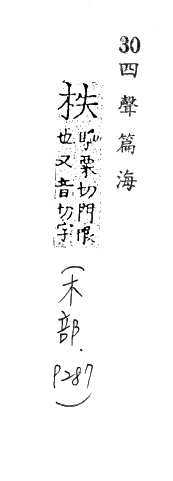 30 四聲篇海
柣
呼栗切門限
也又音切字
(木部. P287)